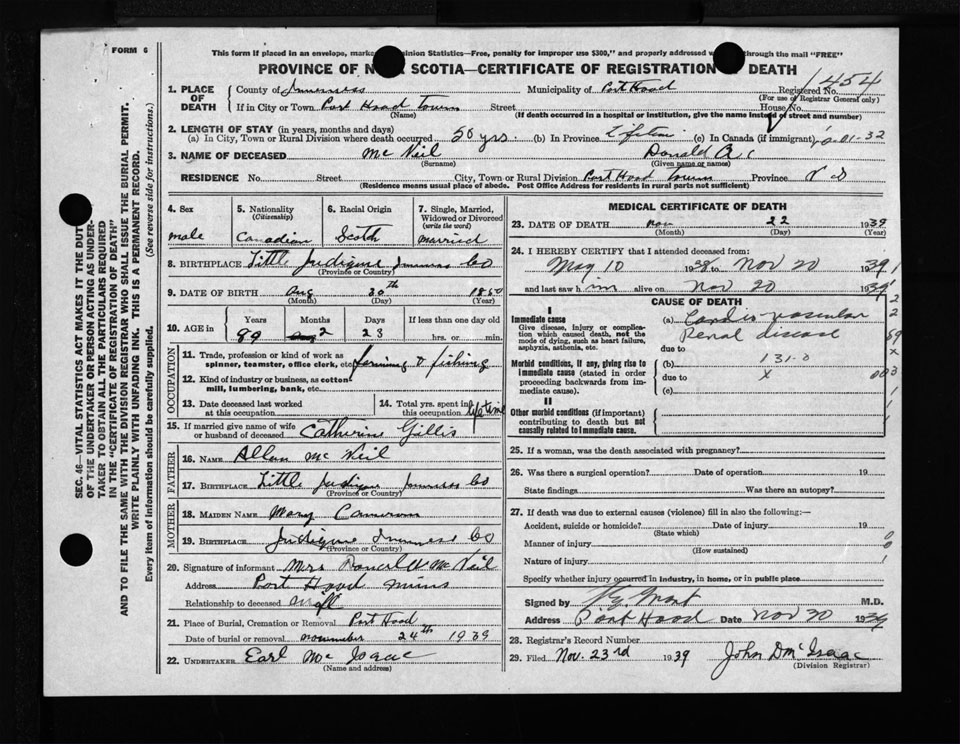 FORM 6
This form if placed in an envelope, marke Dominion Statistics—Free, penalty for improper use $300," and properly addressed w through the mail "FREE"
PROVINCE OF NOVA SCOTIA—CERTIFICATE OF REGISTRATION OF DEATH
1454
1. PLACE OF DEATH
County of Inverness Municipality of Port Hood Registered No.
(For use of Registrar General only)
If in City or Town Port Hood Town Street House No.
(Name) (If death occurred in a hospital or institution, give the name instead of street and number)
2. LENGTH OF STAY (in years, months and days)
(a) In City, Town or Rural Division where death occurred 50 yrs. (b) In Province Lifetime (c) In Canada (if immigrant) 0-01-32
3. NAME OF DECEASED Mc Neil Donald A.
(Surname) (Given name or names)
RESIDENCE No. Street City, Town or Rural Division Port Hood Town Province N S
(Residence means usual place of abode. Post Office Address for residents in rural parts not sufficient)
4. Sex male
5. Nationality (Citizenship) Canadian
6. Racial Origin Scotch
7. Single, Married, Widowed or Divorced (write the word) married
8. BIRTHPLACE Little Judique Inverness Co
(Province or Country)
9. DATE OF BIRTH Aug 30th 1850
(Month) (Day) (Year)
10. AGE in Years 89 Months 2 Days 23 If less than one day old hrs. or min.
OCCUPATION
11. Trade, profession or kind of work as spinner, teamster, office clerk, etc. farming & fishing
12. Kind of industry or business, as cotton mill, lumbering, bank, etc.
13. Date deceased last worked at this occupation
14. Total yrs. spent in this occupation lifetime
15. If married give name of wife or husband of deceased Catherine Gillis
FATHER
16. NAME Allan Mc Neil
17. BIRTHPLACE Little Judique Inverness Co
(Province or Country)
MOTHER
18. MAIDEN NAME Mary Cameron
19. BIRTHPLACE Judique Inverness Co
(Province or Country)
20. Signature of informant Mrs Donald A Mc Neil
Address Port Hood Mines
Relationship to deceased wife
21. Place of Burial, Cremation or Removal Port Hood
Date of burial or removal november 24th 1939
22. UNDERTAKER Earl Mc Isaac
(Name and address)
MEDICAL CERTIFICATE OF DEATH
23. DATE OF DEATH Nov 22 1939
(Month) (Day) (Year)
24. I HEREBY CERTIFY that I attended deceased from:
May 10 1938 to Nov 20 1939
and last saw him alive on Nov 20 1939
CAUSE OF DEATH
I
Immediate cause
Give disease, injury or complication which caused death, not the mode of dying, such as heart failure, asphyxia, asthenia, etc.
(a) Cardio vascular
Renal disease
due to
Morbid conditions, if any, giving rise to immediate cause (stated in order proceeding backwards from immediate cause).
(b) 131-0
due to x
(c)
II
Other morbid conditions (if important) contributing to death but not causally related to immediate cause.
25. If a woman, was the death associated with pregnancy?
26. Was there a surgical operation? Date of operation 19
State findings Was there an autopsy?
27. If death was due to external causes (violence) fill in also the following:—
Accident, suicide or homicide? Date of injury 19
(State which)
Manner of injury
(How sustained)
Nature of injury
Specify whether injury occurred in industry, in home, or in public place
Signed by M.D.
Address Port Hood Date Nov 20 1939
28. Registrar's Record Number
29. Filed Nov. 23rd 1939 John D McIsaac
(Division Registrar)
SEC. 46—VITAL STATISTICS ACT MAKES IT THE DUTY
OF THE UNDERTAKER OR PERSON ACTING AS UNDERTAKER
TO OBTAIN ALL THE PARTICULARS REQUIRED
IN THE "CERTIFICATE OF REGISTRATION OF DEATH"
AND TO FILE THE SAME WITH THE DIVISION REGISTRAR WHO SHALL ISSUE THE BURIAL PERMIT.
WRITE PLAINLY WITH UNFADING INK. THIS IS A PERMANENT RECORD.
Every item of information should be carefully supplied. (See reverse side for instructions.)